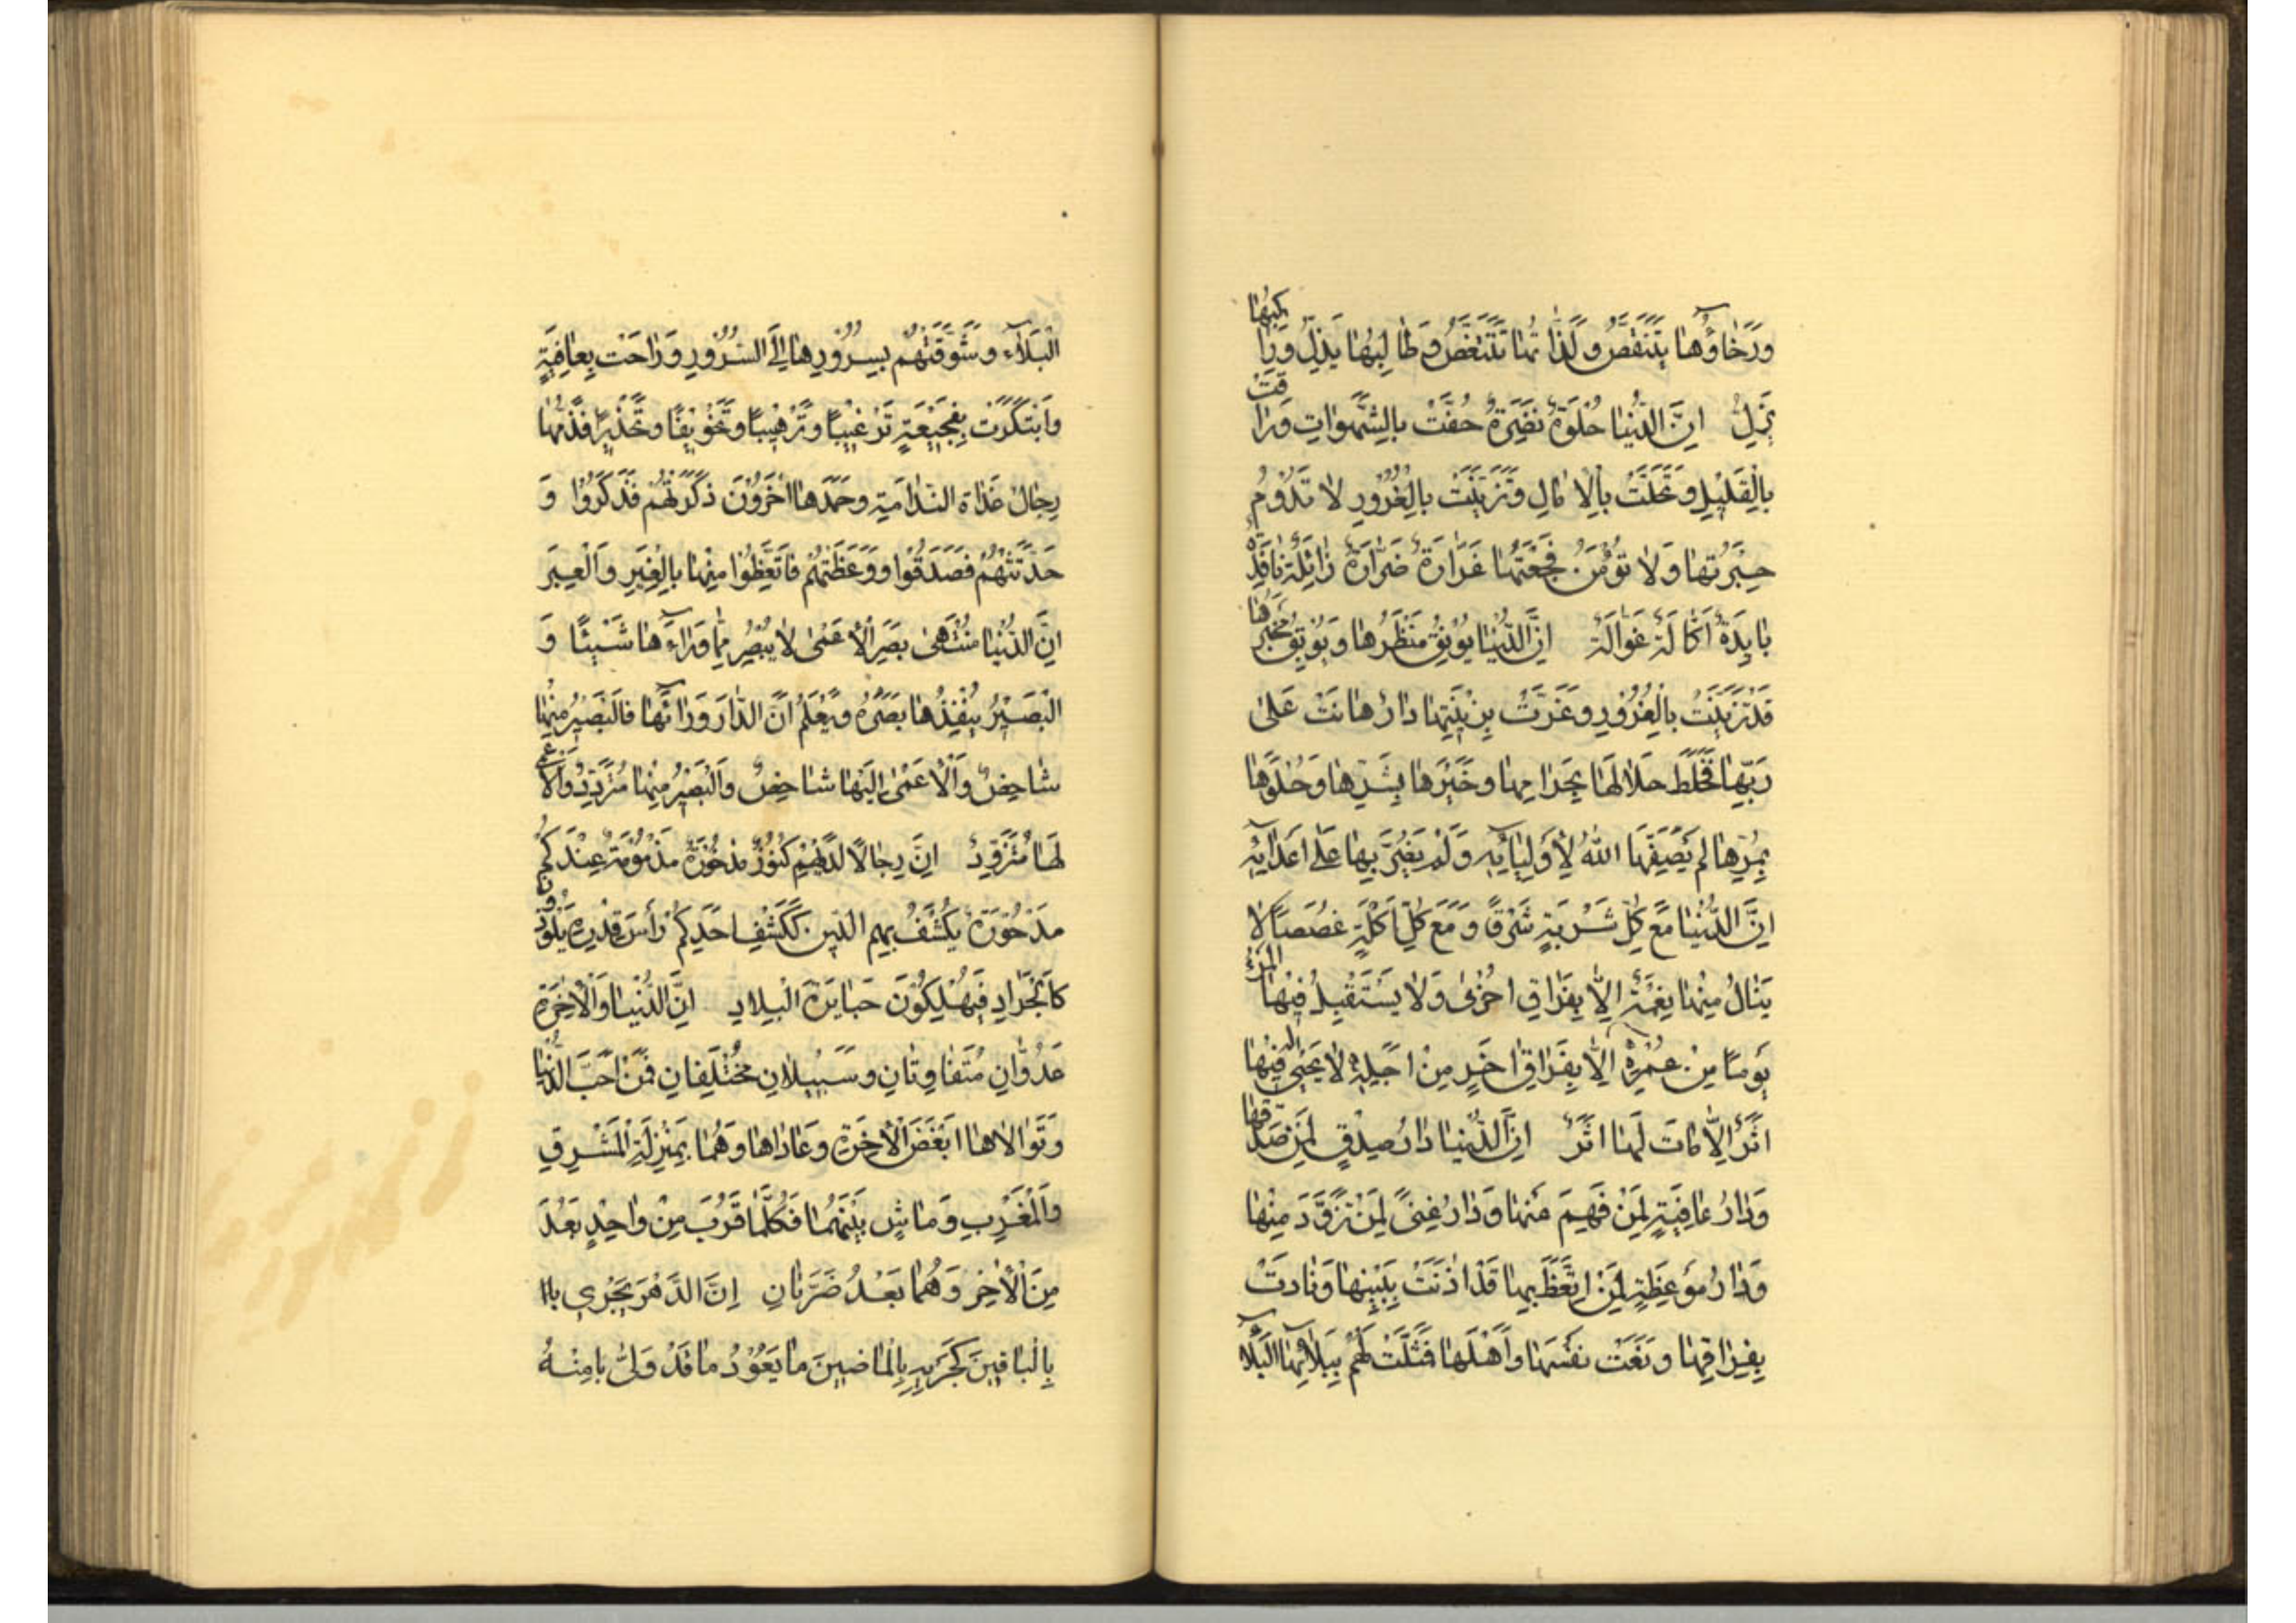 وَرَخَاؤُهَا يَتَنَقَّصُ وَلَذَّاتُهَا تَتَنَغَّصُ وَطَالِبُهَا يَذِلُّ وَرَاكِبُهَا
يَزِلُّ اِنَّ الدُّنْيَا حُلْوَةٌ نَضِرَةٌ حُفَّتْ بِالشَّهَوَاتِ وَرَاقَتْ
بِالْقَلِيْلِ وَتَحَلَّتْ بِالْاٰمَالِ وَتَزَيَّنَتْ بِالْغُرُورِ لَا تَدُوْمُ
حِبَرَتُهَا وَلَا تُؤْمَنُ فَجْعَتُهَا غَرَّارَةٌ ضَرَّارَةٌ زَائِلَةٌ نَافِدَةٌ
بَايِدَةٌ اَكَّالَةٌ غَوَالَةٌ اِنَّ الدُّنْيَا يُوْنِقُ مَنْظَرُهَا وَيُوْبِقُ مَخْبَرُهَا
قَدْ تَزَيَّنَتْ بِالْغُرُوْرِ وَغَرَّتْ بِزِيْنَتِهَا دَارٌ هَانَتْ عَلٰى
رَبِّهَا فَخَلَطَ حَلَالَهَا بِحَرَامِهَا وَخَيْرَهَا بِشَرِّهَا وَحُلْوَهَا
بِمُرِّهَا لَمْ يُصَفِّهَا اللهُ لِاَوْلِيَائِهِ وَلَمْ يَضِنَّ بِهَا عَلٰى اَعْدَائِهِ
اِنَّ الدُّنْيَا مَعَ كُلِّ شَرْبَةٍ شَرَقًا وَمَعَ كُلِّ اَكْلَةٍ غُصَصًا لَا
يَنَالُ مِنْهَا نِعْمَةً اِلَّا بِفِرَاقِ اُخْرٰى وَلَا يَسْتَقْبِلُ فِيْهَا الْمَرْءُ
يَوْمًا مِنْ عُمُرِهِ اِلَّا بِفِرَاقِ اٰخَرَ مِنْ اَجَلِهِ لَا يَحْيٰى لَهُ فِيْهَا
اَثَرٌ اِلَّا مَاتَ لَهَا اَثَرٌ اِنَّ الدُّنْيَا دَارُ صِدْقٍ لِمَنْ صَدَقَهَا
وَدَارُ عَافِيَةٍ لِمَنْ فَهِمَ عَنْهَا وَدَارُ غِنًى لِمَنْ تَزَوَّدَ مِنْهَا
وَدَارُ مَوْعِظَةٍ لِمَنْ اتَّعَظَ بِهَا قَدْ اٰذَنَتْ بِبَيْنِهَا وَنَادَتْ
بِفِرَاقِهَا وَنَعَتْ نَفْسَهَا وَاَهْلَهَا فَمَثَّلَتْ لَهُمْ بِبَلَائِهَا الْبَلَاءَ
الْبَلَاءَ وَشَوَّقَتْهُمْ بِسُرُوْرِهَا اِلَى السُّرُوْرِ وَرَاحَتْ بِعَافِيَةٍ
وَابْتَكَرَتْ بِفَجِيْعَةٍ تَرْغِيْبًا وَتَرْهِيْبًا وَتَخْوِيْفًا وَتَحْذِيْرًا فَذَمَّهَا
رِجَالٌ غَدَاةَ النَّدَامَةِ وَحَمَدَهَا اٰخَرُوْنَ ذَكَّرَتْهُمْ فَذَكَرُوْا وَ
حَدَّثَتْهُمْ فَصَدَقُوْا وَوَعَظَتْهُمْ فَاتَّعَظُوْا مِنْهَا بِالْغِيَرِ وَالْعِبَرِ
اِنَّ الدُّنْيَا مُنْتَهٰى بَصَرِ الْاَعْمٰى لَا يُبْصِرُ مِمَّا وَرَاءَهَا شَيْئًا وَ
الْبَصِيْرُ يَنْفِذُهَا بَصَرُهُ وَيَعْلَمُ اَنَّ الدَّارَ وَرَائَهَا فَالْبَصِيْرُ مِنْهَا
شَاخِصٌ وَالْاَعْمٰى اِلَيْهَا شَاخِصٌ وَالْبَصِيْرُ مِنْهَا مُتَزَوِّدٌ وَالْاَعْمٰى
لَهَا مُتَزَوِّدٌ اِنَّ رِجَالًا لَدَيْهِمْ كُنُوْزٌ مَذْخُوْرَةٌ مَذْمُوْمَةٌ عِنْدَكُمْ
مَدْحُوْرَةٌ يُكْشَفُ بِهِمُ الدِّيْنُ كَكَشْفِ اَحَدِكُمْ رَأْسَ قِدْرِهِ يَلُوْذُوْنَ
كَالْجَرَادِ فَيُهْلِكُوْنَ جَبَابِرَةَ الْبِلَادِ اِنَّ الدُّنْيَا وَالْاٰخِرَةَ
عَدُوَّانِ مُتَفَاوِتَانِ وَسَبِيْلَانِ مُخْتَلِفَانِ فَمَنْ اَحَبَّ الدُّنْيَا
وَتَوَالَاهَا اَبْغَضَ الْاٰخِرَةَ وَعَادَاهَا وَهُمَا بِمَنْزِلَةِ الْمَشْرِقِ
وَالْمَغْرِبِ وَمَاشٍ بَيْنَهُمَا فَكُلَّمَا قَرُبَ مِنْ وَاحِدٍ بَعُدَ
مِنَ الْاٰخَرِ وَهُمَا بَعْدُ ضَرَّتَانِ اِنَّ الدَّهْرَ يَجْرِي باا
بِالْبَاقِيْنَ كَجَرْيِهِ بِالْمَاضِيْنَ مَا يَعُوْدُ مَا قَدْ وَلّٰى بامِنْهُ